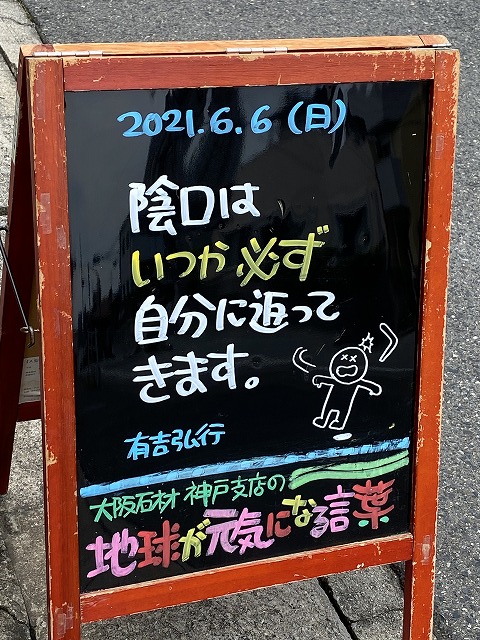 2021.6.6(日)
陰口は
いつか必ず
自分に返って
きます。
有吉弘行
大阪石材 神戸支店の
地球が元気になる言葉